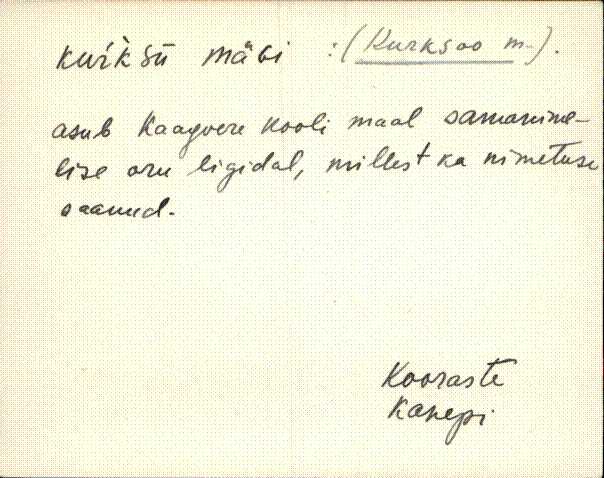 kur̀k̀sū mägi :(Kurksoo m-).
asub Kaagvere kooli maal samanime-
lise oru ligidal, millest ka nimetuse
saanud.
Kooraste
Kanepi